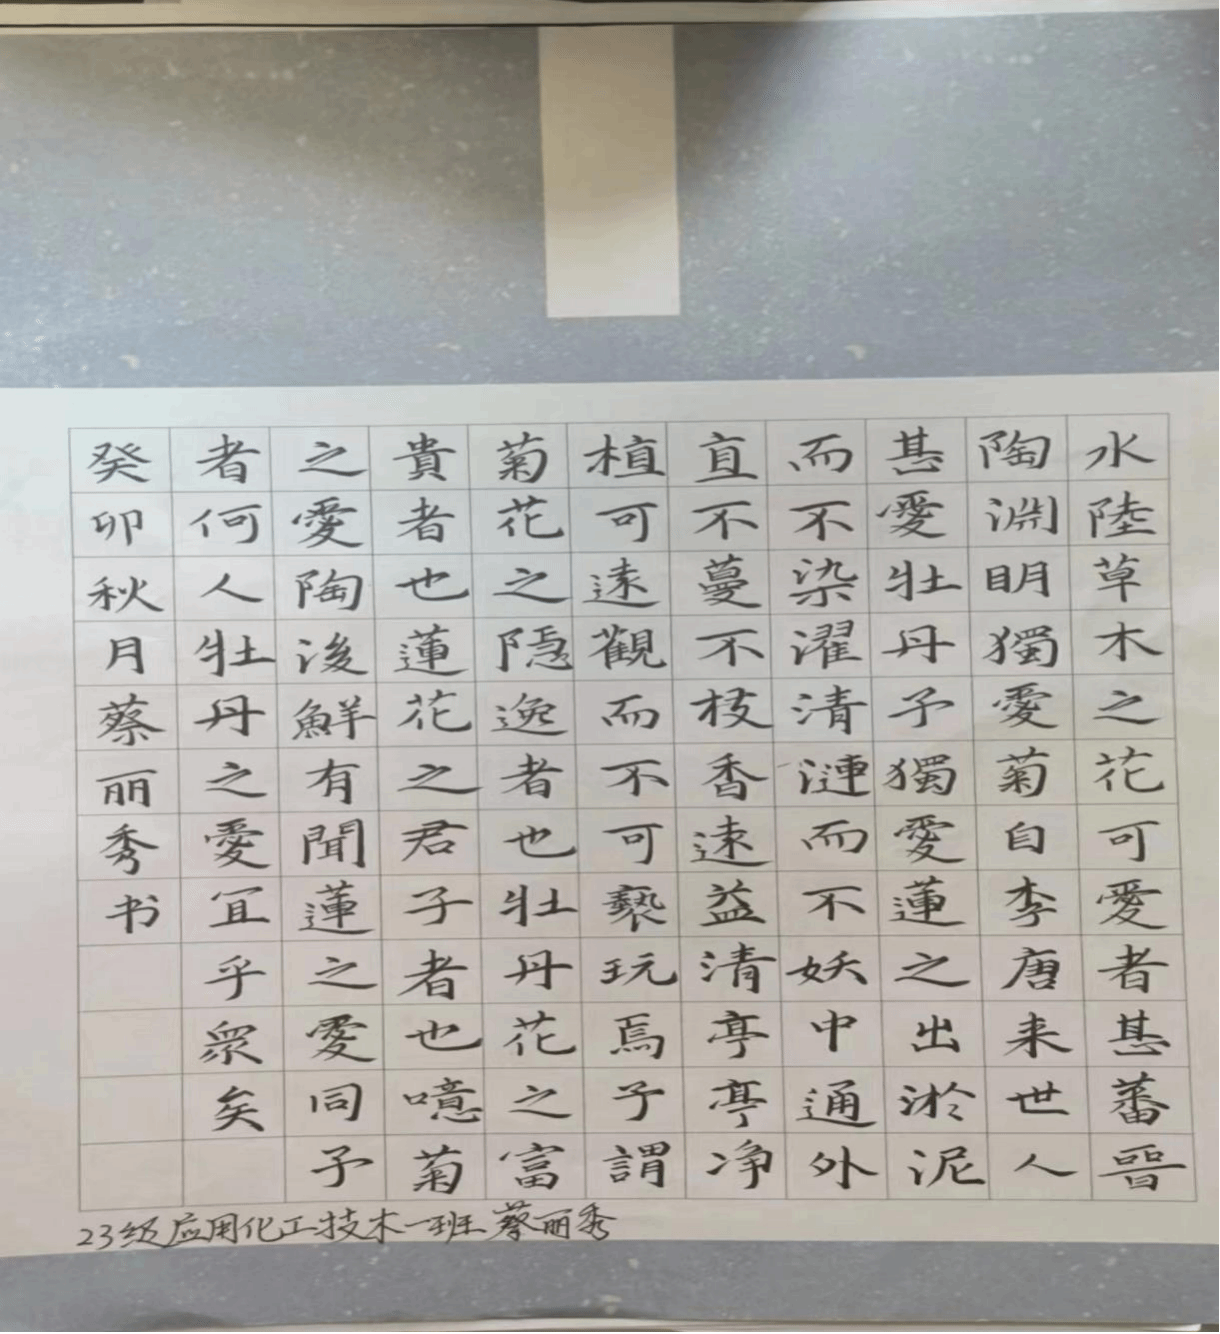 水陸草木之花可愛者甚蕃晉
陶淵明獨愛菊自李唐来世人
甚愛牡丹予獨愛蓮之出淤泥
而不染濯清漣而不妖中通外
直不蔓不枝香遠益清亭亭净
植可遠觀而不可褻玩焉予謂
菊花之隱逸者也牡丹花之富
貴者也蓮花之君子者也噫菊
之愛陶後鮮有聞蓮之愛同予
者何人牡丹之愛宜乎眾矣
癸卯秋月蔡丽秀书
23级应用化工技术一班蔡丽秀